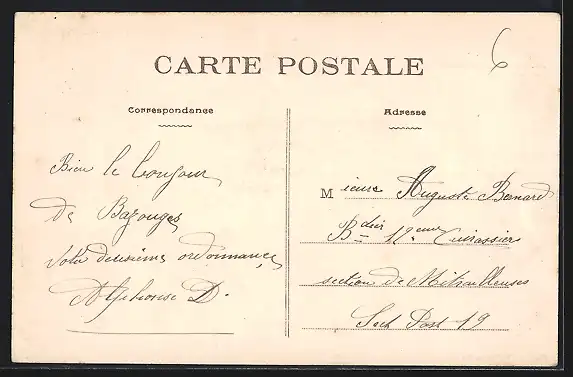 CARTE POSTALE
6
Correspondance
Bien le bonjour
de Bazouges
deuxième ordonnance
Alphonse D.
Adresse
M ieure Auguste Bernard
Bdier 12eme Cuirassiers
section de Mitrailleuses
Sect Post 19